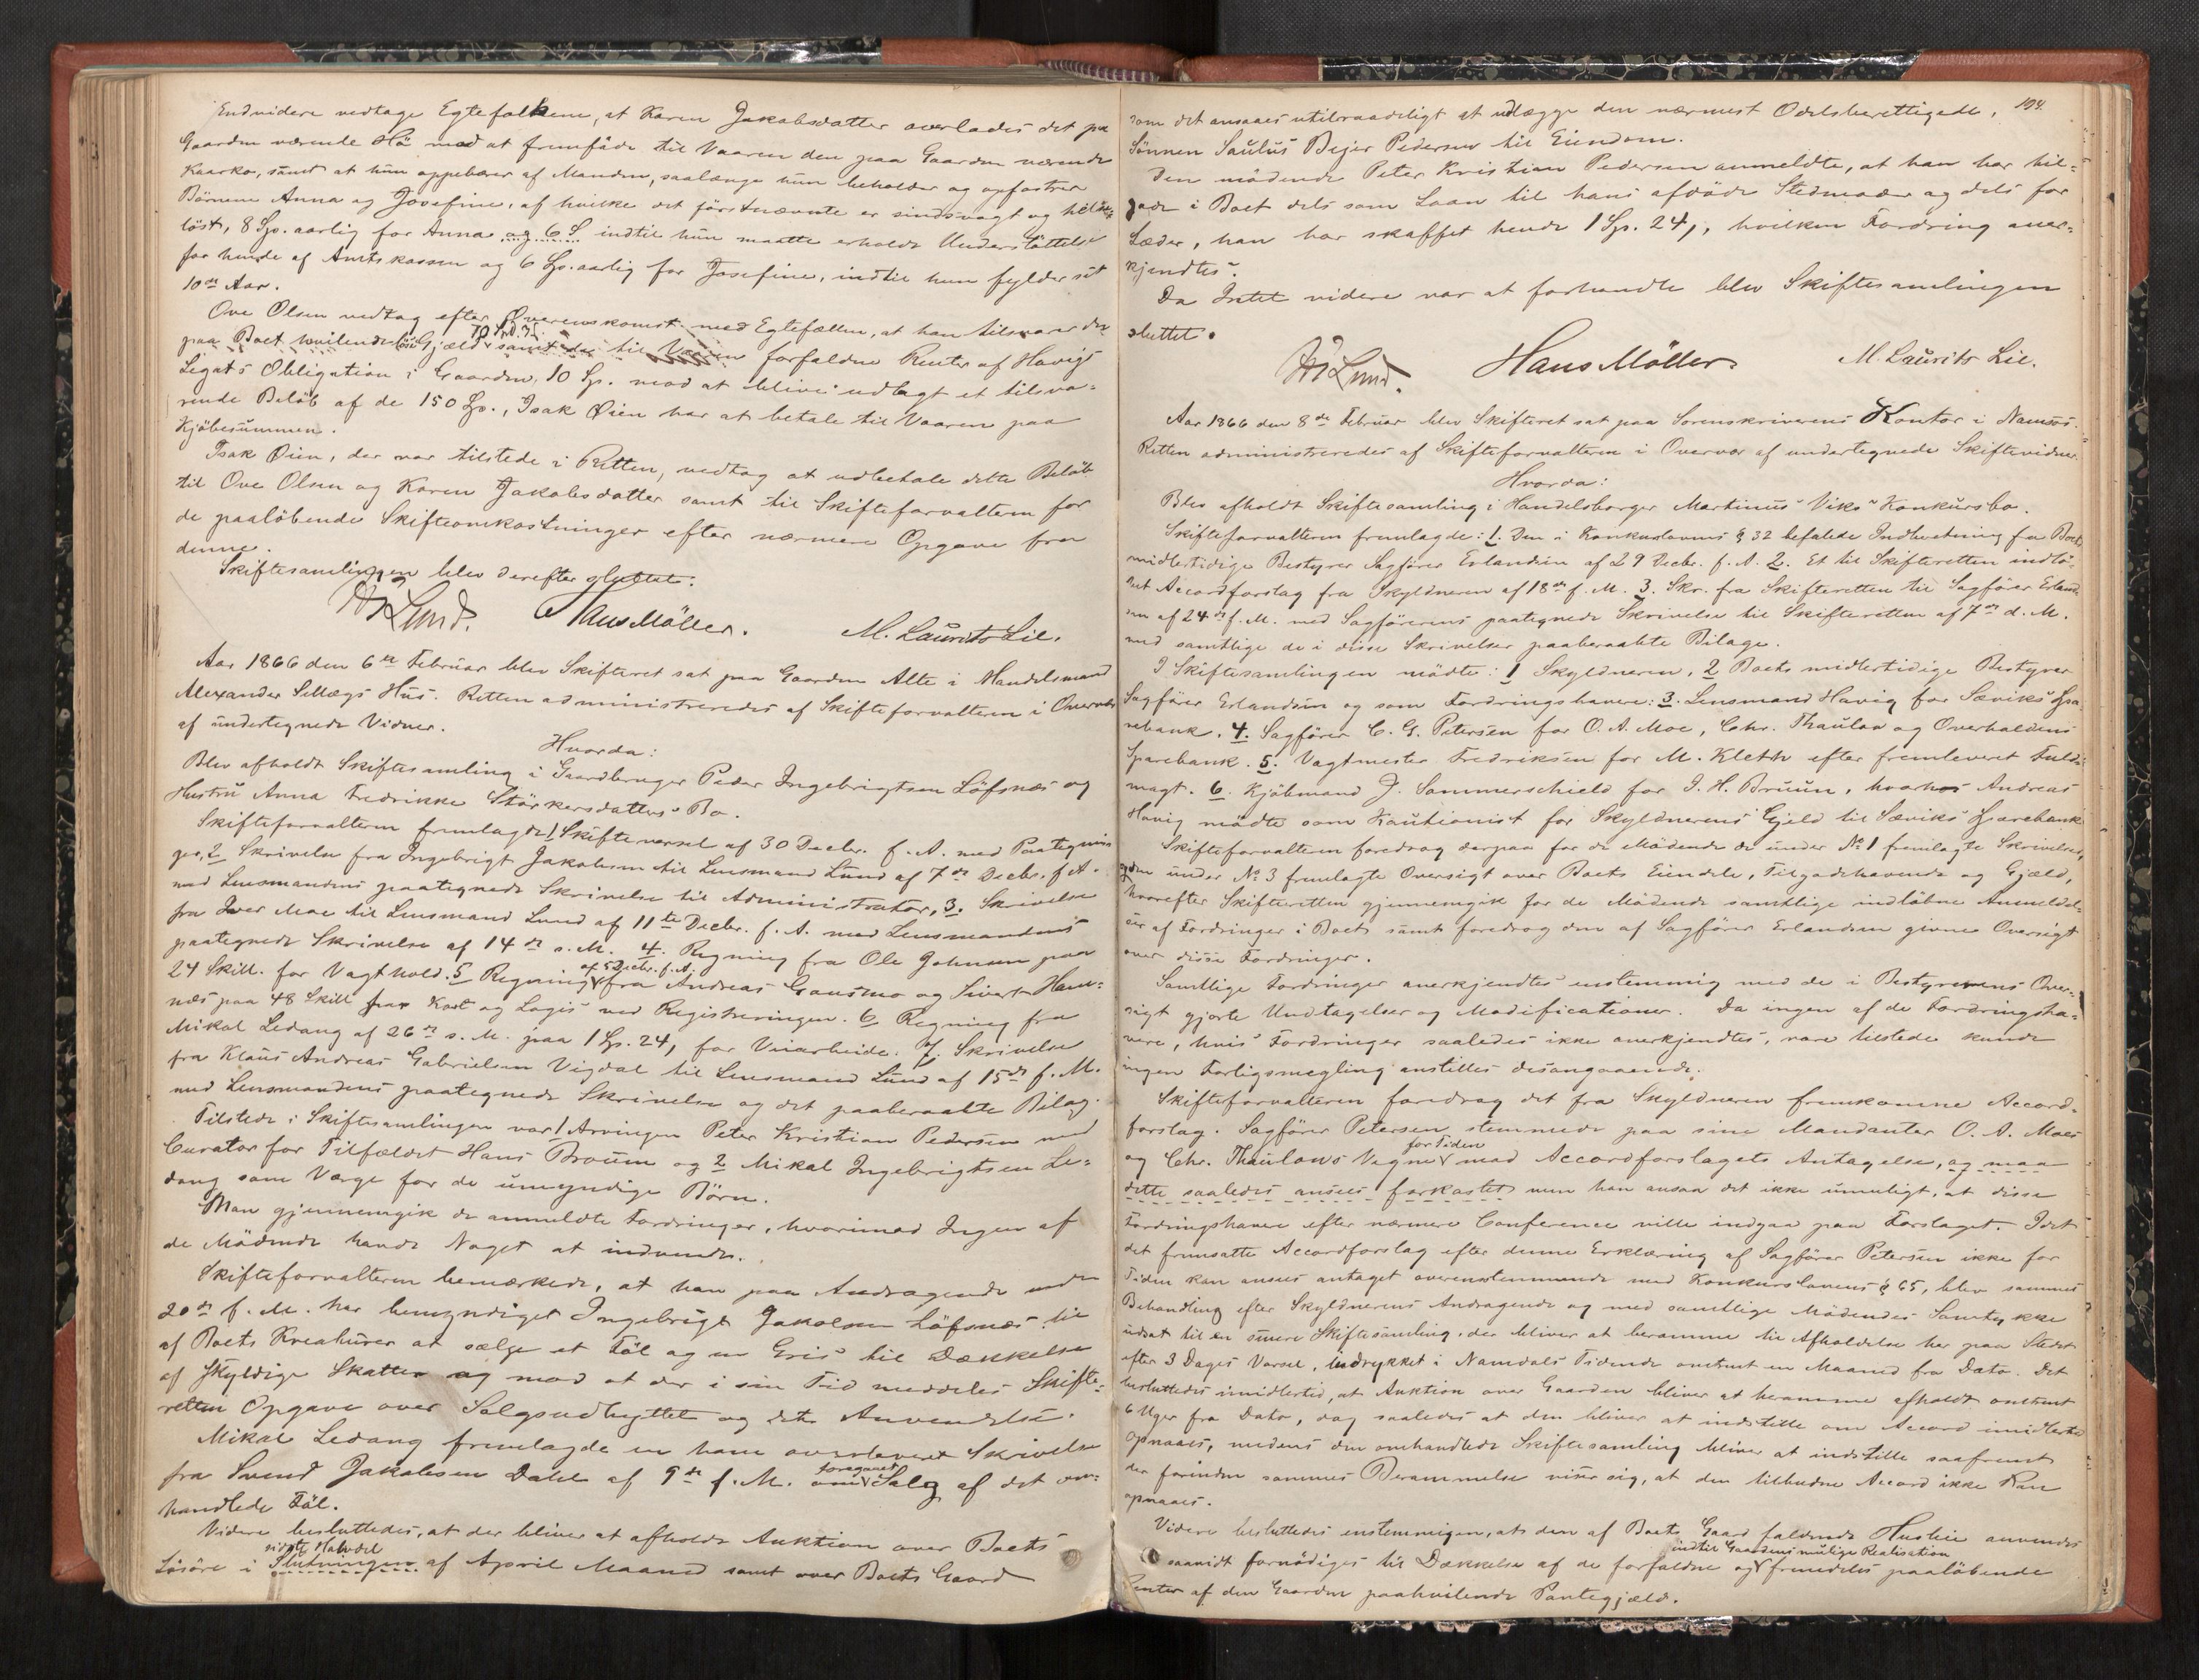 Endvidere vedtage Egtefolkene, at Karen Jakobsdatter overlades det paa
Gaarden værende Hö mod at fremföde til Vaaren den paa Gaarden værende
Kaarko, samt at hun oppebærer af Manden, saalænge hun beholder og opfostrer
Börnene Anna og Josefine, af hvilke det förstnævnte er sindssvagt og hel
löst, 8 Sp. aarlig for Anna og 6 S indtil hun maatte erholde Understöttelse
for hende af Amtskassen og 6 Sp. aarlig for Josefine, indtil hun fylder sit
10de Aar.
Ove Olsen vedtog efter Overenskomst med Egtefællen, at han tilsvarer den
paa Boet hvilende löse Gjæld samt den til Vaaren forfaldne Rente af Havigs
Legats Obligation i Gaarden, 10 Sp. mod at blive udlagt et tilsva-
rende Belöb af de 150 Sp., Isak Øien har at betale til Vaaren paa
Kjöbesummen.
Isak Øien, der var tilstede i Retten, vedtog at udbetale dette Belöb
til Ove Olsen og Karen Jakobsdatter samt til Skifteforvalteren for
de paalöbende Skifteomkostninger efter nærmere Opgave fra
denne.
Skiftesamlingen blev derefter sluttet.
Lund. Hans Möller. M. Laurits Lie.
Aar 1866 den 6te Februar blev Skifteret sat paa Gaarden Alte i Handelsmand
Alexander Sellægs Hus. Retten administreredes af Skifteforvalteren i Overvær
af undertegnede Vidner.
Hvorda:
Blev afholdt Skiftesamling i Gaardbruger Peder Ingebrigtsen Löfsnæs og
Hustru Anna Fredrikke Störkersdatters Bo.
Skifteforvalteren fremlagde 1 Skiftevarsel af 30 Decbr. f. A. med Paategnin
ger, 2 Skrivelse fra Ingebrigt Jakobsen til Lensmand Lund af 7de Decbr. f. A.
med Lensmandens paategnede Skrivelse til Administrator, 3. Skrivelse
fra Iver Moe til Lensmand Lund af 11te Decbr. f. A. med Lensmandens
paategnede Skrivelse af 14de s. M. 4. Regning fra Ole Johnsen paa
24 Skill. for Vagthold. 5 Regning af 5 Decbr. f. A. fra Andreas Gausmo og Sivert Ham-
næs paa 48 Skill for Kost og Logis ved Registreringen. 6 Regning fra
Mikal Ledang af 26de s. M. paa 1 Sp. 24, for Veiarbeide. 7. Skrivelse
fra Klaus Andreas Gabrielsen Vigdal til Lensmand Lund af 15de f. M.
med Lensmandens paategnede Skrivelse og det paaberaabte Bilag.
Tilstede i Skiftesamlingen var 1 Arvingen Peter Kristian Pedersen med
Curator for Tilfældet Hans Broum og 2 Mikal Ingebrigtsen Le-
dang som Værge for de umyndige Börn.
Man gjennemgik de anmeldte Fordringer, hvorimod Ingen af
de Mödende havde Noget at indvende.
Skifteforvalteren bemærkede, at han paa Andragende under
20de f. M. har bemyndiget Ingebrigt Jakobsen Löfsnæs til
af Boets Kreaturer at sælge et Föl og en Gris til Dækkelse
af skyldige Skatter og mod at der i sin Tid meddeles Skifte-
retten Opgave over Salgsudbyttet og dets Anvendelse.
Mikal Ledang fremlagde en ham overleveret Skrivelse
fra Svend Jakobsen Dahl af 9de f. M. om foregaaet Salg af det om-
handlede Föl.
Videre besluttedes, at der bliver at afholde Auktion over Boets
Lösöre i sidste Halvdel Slutningen af April Maaned samt over Boets Gaard
194.
som det ansaaes utilraadeligt at udlægge den nærmest Odelsberettigede,
Sönnen Saulus Bejer Pedersen til Eiendom.
Den mödende Peter Kristian Pedersen anmeldte, at han har til-
gode i Boet dels som Laan til hans afdöde Stedmoder og dels for
Læder, han har skaffet hende 1 Sp. 24, hvilken Fordring aner-
kjendtes.
Da Intet videre var at forhandle blev Skiftesamlingen
sluttet.
Lund. Hans Möller. M. Laurits Lie.
Aar 1866 den 8de Februar blev Skifteret sat paa Sorenskriverens Kontor i Namsos.
Retten administreredes af Skifteforvalteren i Overvær af undertegnede Skiftevidner.
Hvorda:
Blev afholdt Skiftesamling i Handelsborger Martinus Viks Konkursbo.
Skifteforvalteren fremlagde: 1. Den i Konkurslovens § 32 befalede Indberetning fra Boets
midlertidige Bestyrer Sagförer Erlandsen af 29 Decbr. f. A. 2. Et til Skifteretten indlö-
bet Accordforslag fra Skyldneren af 18de f. M. 3. Skr. fra Skifteretten til Sagförer Erland
sen af 24de f. M. med Sagförerens paategnede Skrivelse til Skifteretten af 7de d. M.
med samtlige de i disse Skrivelser paaberaabte Bilage.
I Skiftesamlingen mödte: 1 Skyldneren, 2 Boets midlertidige Bestyrer
Sagförer Erlandsen og som Fordringshavere: 3. Lensmand Havig for Sæviks Spa
rebank. 4. Sagförer C. G. Petersen for O. A. Moe, Chr. Thaulow og Overhaldens
Sparebank. 5. Vagtmester Fredriksen for M. Kleth efter fremleveret Fuld-
magt. 6. Kjöbmand J. Sommerschield for J. H. Bruun, hvorhos Andreas
Havig mödte som Kautionist for Skyldnerens Gjeld til Sæviks Sparebank
Skifteforvalteren foredrog derpaa for de Mödende de under No 1 fremlagte Skrivelser,
og den under No 3 fremlagte Oversigt over Boets Eiendele, Tilgodehavende og Gjæld,
hvorefter Skifteretten gjennemgik for de Mödende samtlige indlöbne Anmeldel-
ser af Fordringer i Boet samt foredrog den af Sagförer Erlandsen givne Oversigt
over disse Fordringer.
Samtlige Fordringer anerkjendtes enstemmig med de i Bestyrerens Over-
sigt gjorte Undtagelser og Modificationer. Da ingen af de Fordringsha-
vere, hvis Fordringer saaledes ikke anerkjendtes, vare tilstede kunde
ingen Forligsmegling anstilles desangaaende.
Skifteforvalteren foredrog det fra Skyldneren fremkomne Accord-
forslag. Sagförer Petersen stemmede paa sine Mandanter O. A. Moes
og Chr. Thaulows Vegne for Tiden mod Accordforslagets Antagelse, og maa
dette saaledes ansees forkastet men han ansaa det ikke umuligt, at disse
Fordringshavere efter nærmere Conference ville indgaa paa Forslaget. Idet
det fremsatte Accordforslag efter denne Erklæring af Sagförer Petersen ikke for
Tiden kan ansees antaget overensstemmende med Konkurslovens § 65, blev sammes
Behandling efter Skyldnerens Andragende og med samtlige Mödendes Samtykke
udsat til en senere Skiftesamling, der bliver at beramme til Afholdelse her paa Stedet
efter 3 Dages Varsel, indrykket i Namdals Tidende omtrent en Maaned fra Dato. Det
besluttedes imidlertid, at Auktion over Gaarden bliver at beramme afholdt omtrent
6 Uger fra Dato, dog saaledes at den bliver at indstille om Accord imidlertid
opnaaes, medens den omhandlede Skiftesamling bliver at indstille saafremt
der forinden sammes Berammelse viser sig, at den tilbudne Accord ikke kan
opnaaes.
Videre besluttedes enstemmigen, at den af Boets Gaard faldende Husleie anvendes
saavidt fornödiges til Dækkelse af de forfaldne og indtil Gaardens mulige Realisation fremdeles paalöbende
Renter af den Gaarden paahvilende Pantegjæld.